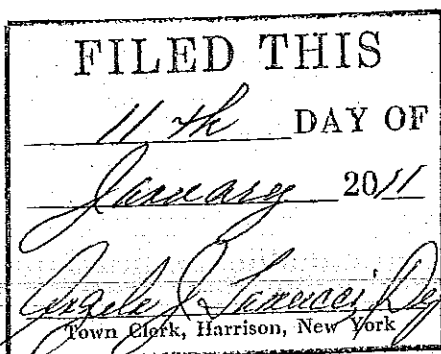 FILED THIS
11th DAY OF
January 2011
Angela J
Town Clerk, Harrison, New York